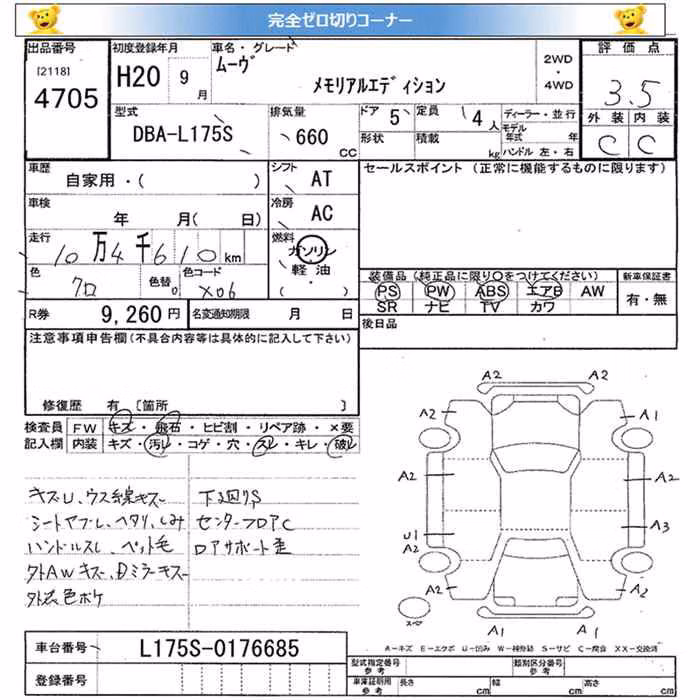 完全ゼロ切りコーナー
出品番号 初度登録年月 車名・グレード 評価点
[2118] 4705 H20 9月 ムーヴ メモリアルエディション 2WD・4WD 3.5
外装 内装
C C
型式 排気量 ドア 5 定員 4人 ディーラー・並行
DBA-L175S 660 CC 形状 積載 kg モデル年式 年
ハンドル 左・右
車歴 シフト セールスポイント (正常に機能するものに限ります)
自家用・( ) AT
車検 冷房
年 月(日) AC
走行 燃料
10万4千610km ガソリン
軽油
( )
色 色替 カラーコード 装備品(純正品に限り○をつけてください) 新車保証書
クロ X06 PS PW ABS エアB AW 有・無
SR ナビ TV カワ
R券 9,260円 名変通知期限 月 日 後日品
注意事項申告欄(不具合内容等は具体的に記入して下さい)
修復歴 有 [箇所 ]
検査員 FW キズ・飛石・ヒビ割・リペア跡・×要
記入欄 内装 キズ・汚レ・コゲ・穴・スレ・キレ・破レ
キズU、ウス線キズ 下廻りS
シートヤブレ、ヘタリ、しみ センターフロアC
ハンドルスレ、ペット毛 ロアサポート歪
外AWキズ、Dミラーキズ
外装色ボケ
A2 A2
A2 A1
A2 A2
U1 A2 A3
A2 A2
スペア A1 A1
A-キズ E-エクボ U-凹み W-補修跡 S-サビ C-腐食 XX-交換済
車台番号 L175S-0176685
型式指定番号 参考 類別区分番号 参考
登録番号
車庫証明用 参考 長さ cm 幅 cm 高さ cm